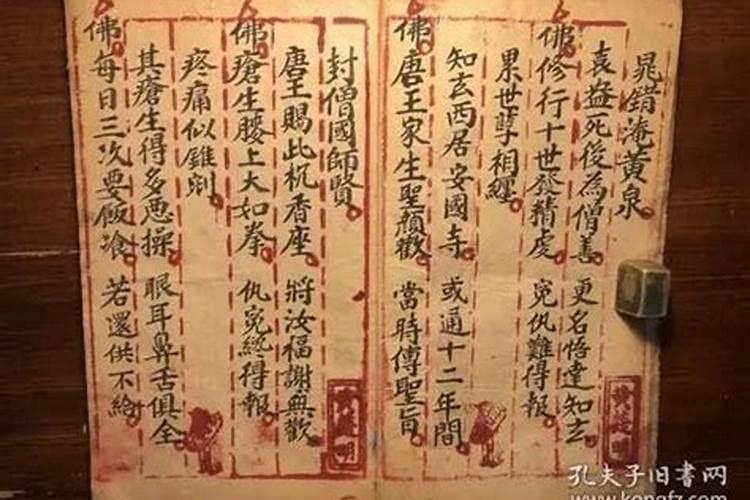 晁錯淹黃泉
袁益死後為僧善 更名悟達知玄
佛修行十世發精虔 寃仇難得報
累世孽相纏
知玄西居安國寺 或通十二年間
佛唐王家生聖顏歡 當時傳聖旨
封僧國師賢
唐王賜此杌香座 將汝福謝無歡
佛瘡生腰上大如拳 仇寃終得報
疼痛似錐剜
其瘡生得多 操 眼耳鼻舌俱全
佛每日三次要飯飡 若還供不給
孔夫子旧书网
www.kongfz.com